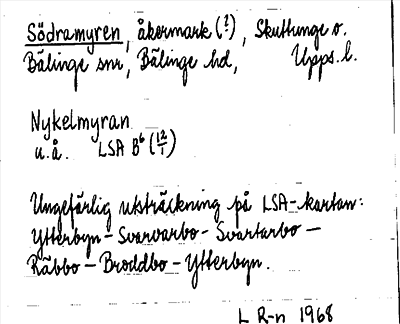 Södramyren, åkermark (?), Skuttunge o.
Bälinge snr, Bälinge hd, Upps. l.
Nykelmyran
u.å. LSA B⁶ (12/1)
Ungefärlig utsträckning på LSA-kartan:
Ytterbyn - Svarvarbo - Svartarbo -
Räbbo - Broddbo - Ytterbyn.
L R-n 1968